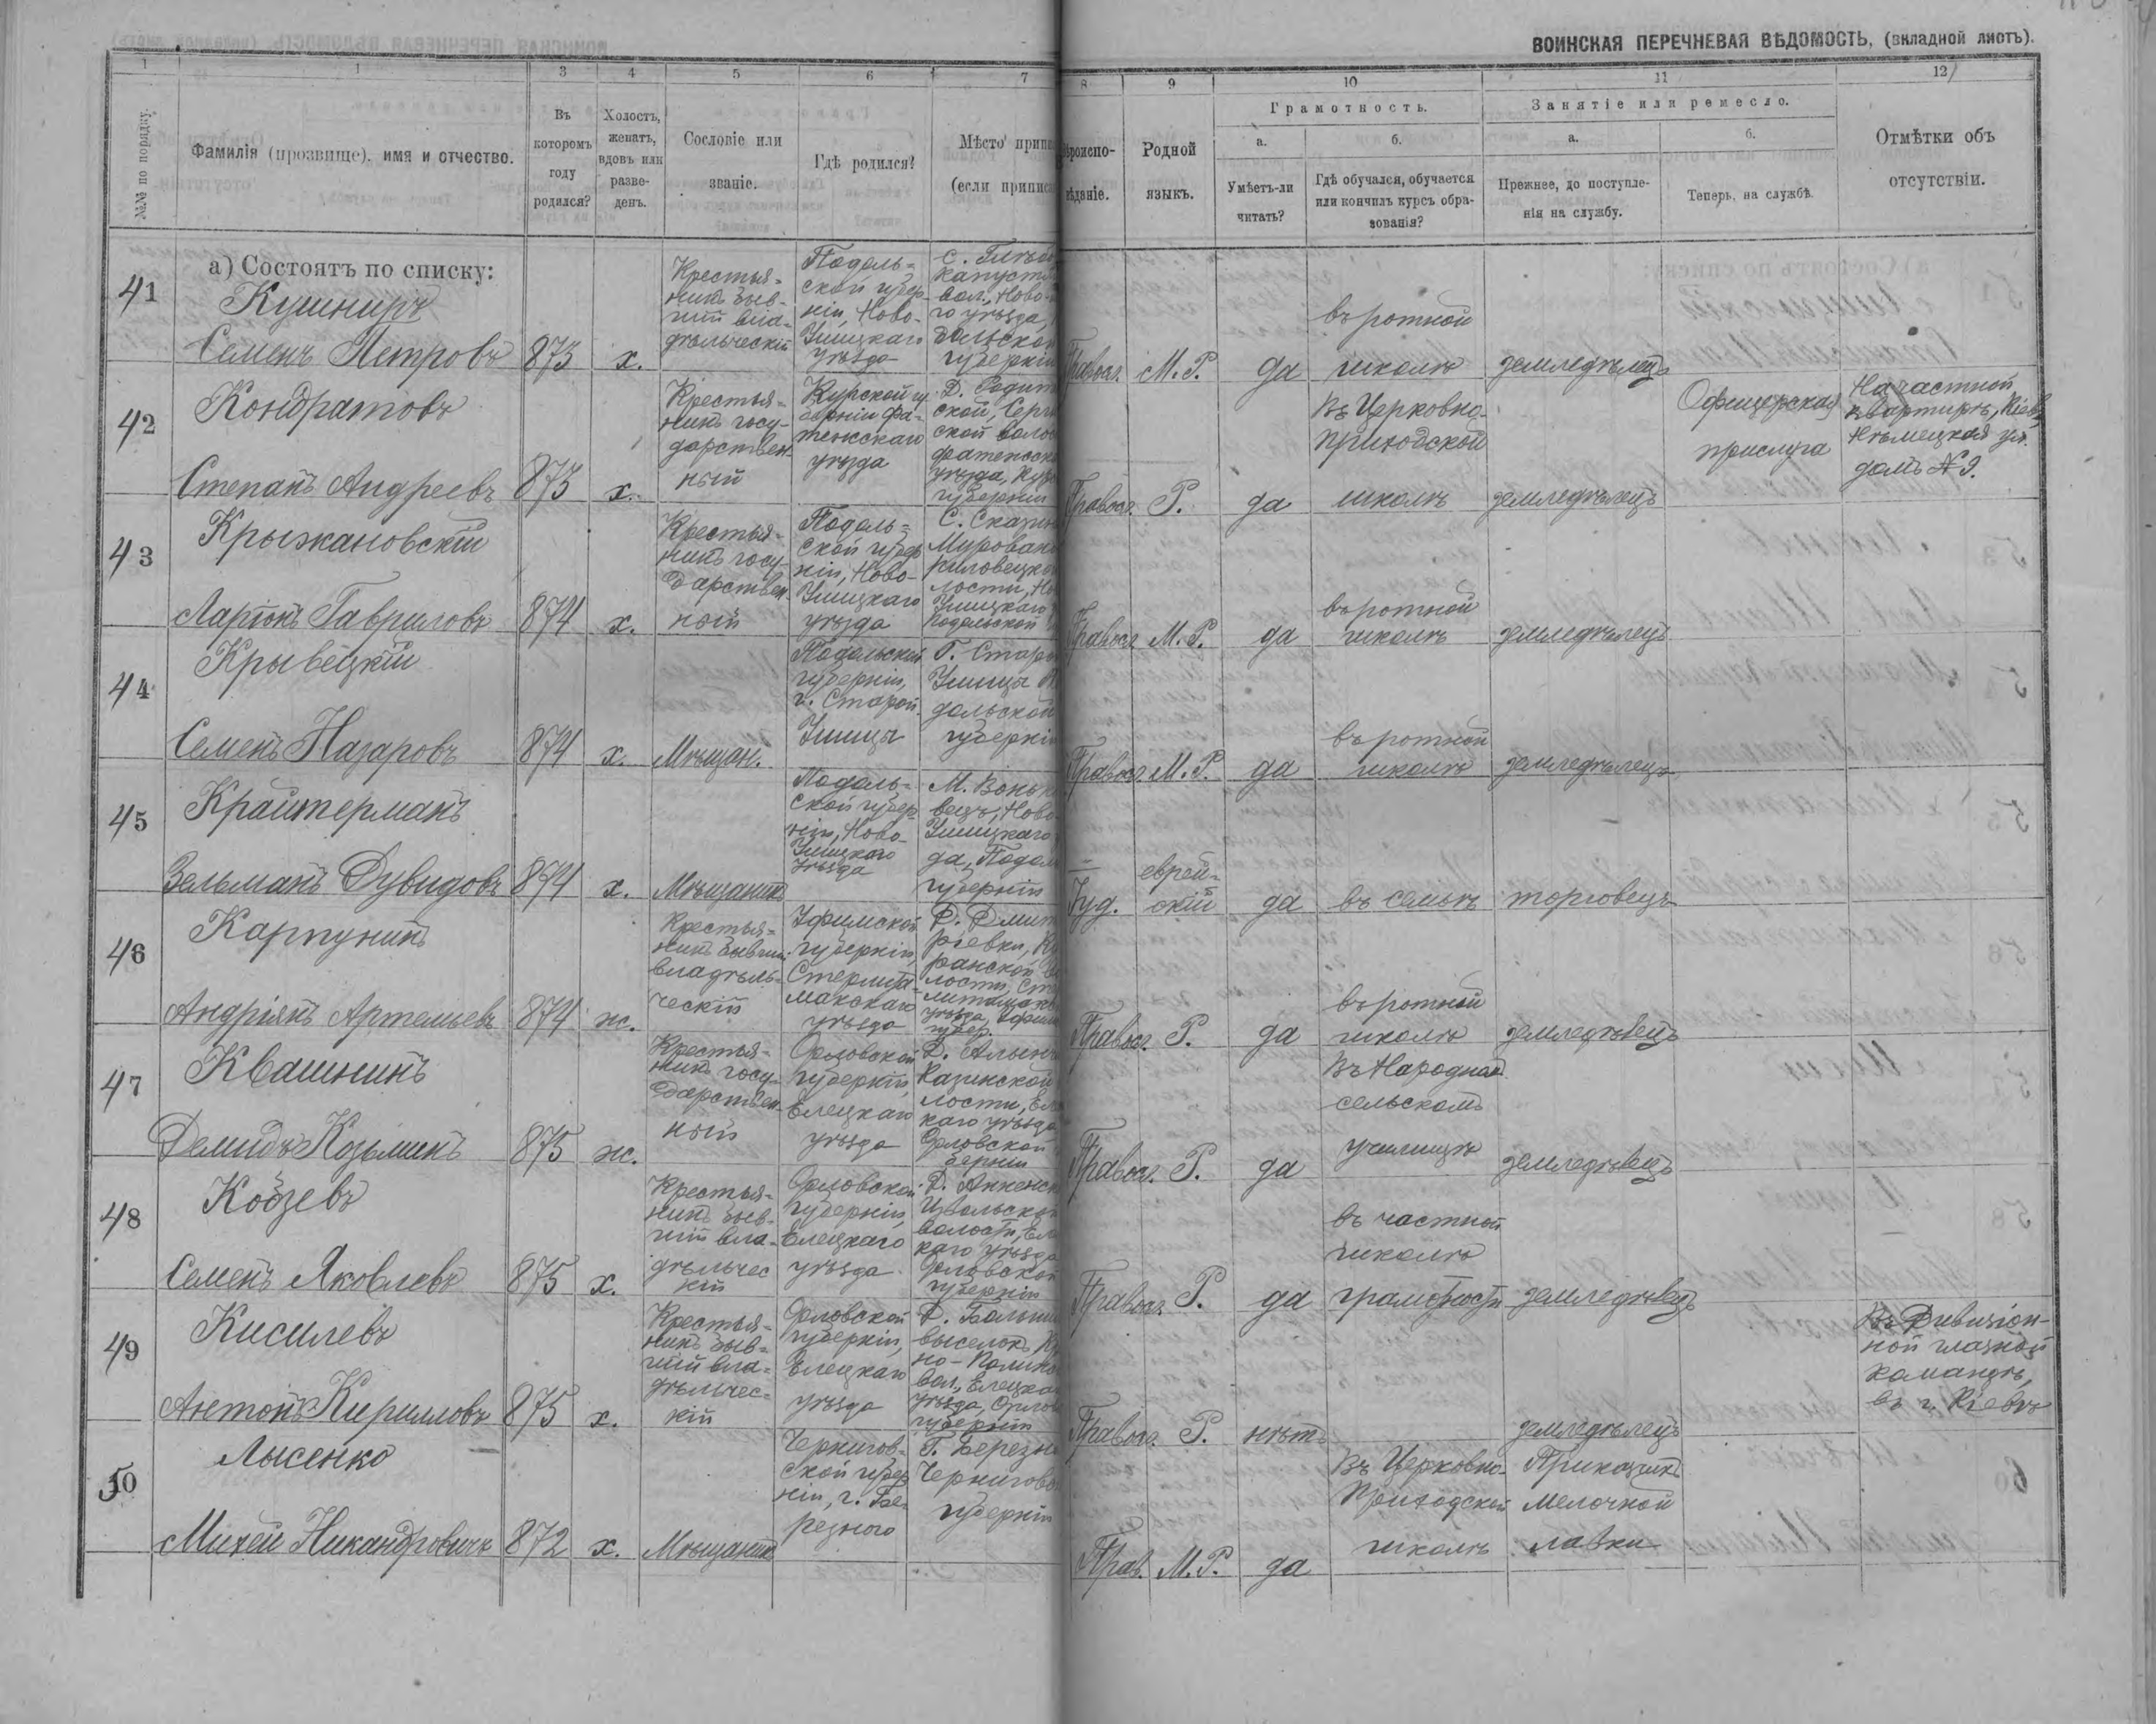 ВОИНСКАЯ ПЕРЕЧНЕВАЯ ВѢДОМОСТЬ, (вкладной листъ).
1 1 3 4 5 6 7 8 9 10 11 12
№№ по порядку.
Фамилія (прозвище), имя и отчество.
Въ
которомъ
году
родился?
Холостъ,
женатъ,
вдовъ или
разве-
денъ.
Сословіе или
званіе.
Гдѣ родился?
Мѣсто припи
(если приписа
ѣроиспо-
вѣданіе.
Родной
языкъ.
Грамотность.
а.
Умѣетъ-ли
читать?
б.
Гдѣ обучался, обучается
или кончилъ курсъ обра-
зованія?
Занятіе или ремесло.
а.
Прежнее, до поступле-
нія на службу.
б.
Теперь, на службѣ.
Отмѣтки объ
отсутствіи.
а) Состоятъ по списку:
41
Кушниръ
Семенъ Петровъ
873
х.
Крестья-
нинъ быв-
шій вла-
дѣльческій
Подоль-
ской губер-
ніи, Ново-
Ушицкаго
уѣзда
капуст
вол., Ново-
го уѣзда,
дольской
губерніи
Правосл.
М. Р.
да
въ ротной
школѣ
земледѣлецъ
42
Кондратовъ
Степанъ Андреевъ
873
х.
Крестья-
нинъ госу-
дарствен-
ный
Курской гу
берніи Фа-
тежскаго
уѣзда
ской волос
уѣзда, Кур
губерніи
Правосл.
Р.
да
Въ Церковно-
Приходской
школѣ
земледѣлецъ
Офицерская
прислуга
На частной
квартирѣ, Кіевъ,
Нѣмецкая ул.
домъ № 9.
43
Крыжановскій
Ларіонъ Гавриловъ
874
х.
Крестья-
нинъ госу-
дарствен-
ный
Подоль-
ской губер
ніи, Ново-
Ушицкаго
уѣзда
Мурован
риловецко
лости, Но
Ушицкаго
Подольской
Правосл.
М. Р.
да
въ ротной
школѣ
земледѣлецъ
44
Крывецкій
Семенъ Назаровъ
874
х.
Мѣщан.
Подольской
губерніи,
г. Старой
Ушицы
Г. Старо
Ушицы П
дольской
губерніи
Правосл.
М. Р.
да
въ ротной
школѣ
земледѣлецъ
45
Крайтерманъ
Зельманъ Дувидовъ
874
х.
Мѣщанинъ
Подоль-
ской губер-
ніи, Ново-
Ушицкаго
уѣзда
М. Вонько
вецъ, Ново
Ушицкаго
да, Подол
губерніи
Іуд.
еврей-
скій
да
въ семьѣ
торговецъ
46
Карпунинъ
Андріянъ Артемьевъ
874
ж.
Крестья-
нинъ бывшій
владѣль-
ческій
Уфимской
губерніи,
Стерлита-
макскаго
уѣзда
Д. Дмит
ріевки,
лости, Ст
уѣзда, Уфим
губер.
Правосл.
Р.
да
въ ротной
школѣ
земледѣлецъ
47
Квашнинъ
Демидъ Козьминъ
875
ж.
Крестья-
нинъ госу-
дарствен-
ный
Орловской
губерніи,
Елецкаго
уѣзда
Казинской
лости, Ел
каго уѣзда
Орловской
берніи
Правосл.
Р.
да
Въ Народном
сельскомъ
училищѣ
земледѣлецъ
48
Кобзевъ
Семенъ Яковлевъ
875
х.
Крестья-
нинъ быв-
шій вла-
дѣльчес
кій
Орловской
губерніи,
Елецкаго
уѣзда
волости, Ел
каго уѣзда
Орловской
губерніи
Правосл.
Р.
да
въ частной
школѣ
грамотности
земледѣлецъ
49
Кисилевъ
Антонъ Кирилловъ
875
х.
Крестья-
нинъ быв-
шій вла-
дѣльчес-
кій
Орловской
губерніи,
Елецкаго
уѣзда
выселокъ,
вол., Елецка
уѣзда, Орлов
губерніи
Правосл.
Р.
нѣтъ
земледѣлецъ
Въ Дивизіон-
ной глазной
командѣ,
въ г. Кіевѣ
50
Лысенко
Михей Никандровичъ
872
х.
Мѣщанинъ
Чернигов-
ской губер
ніи, г. Бе-
резного
Г. Березн
Черниговс
губерніи
Прав.
М. Р.
да
Въ Церковно-
Приходской
школѣ
Приказчикъ
мелочной
лавки